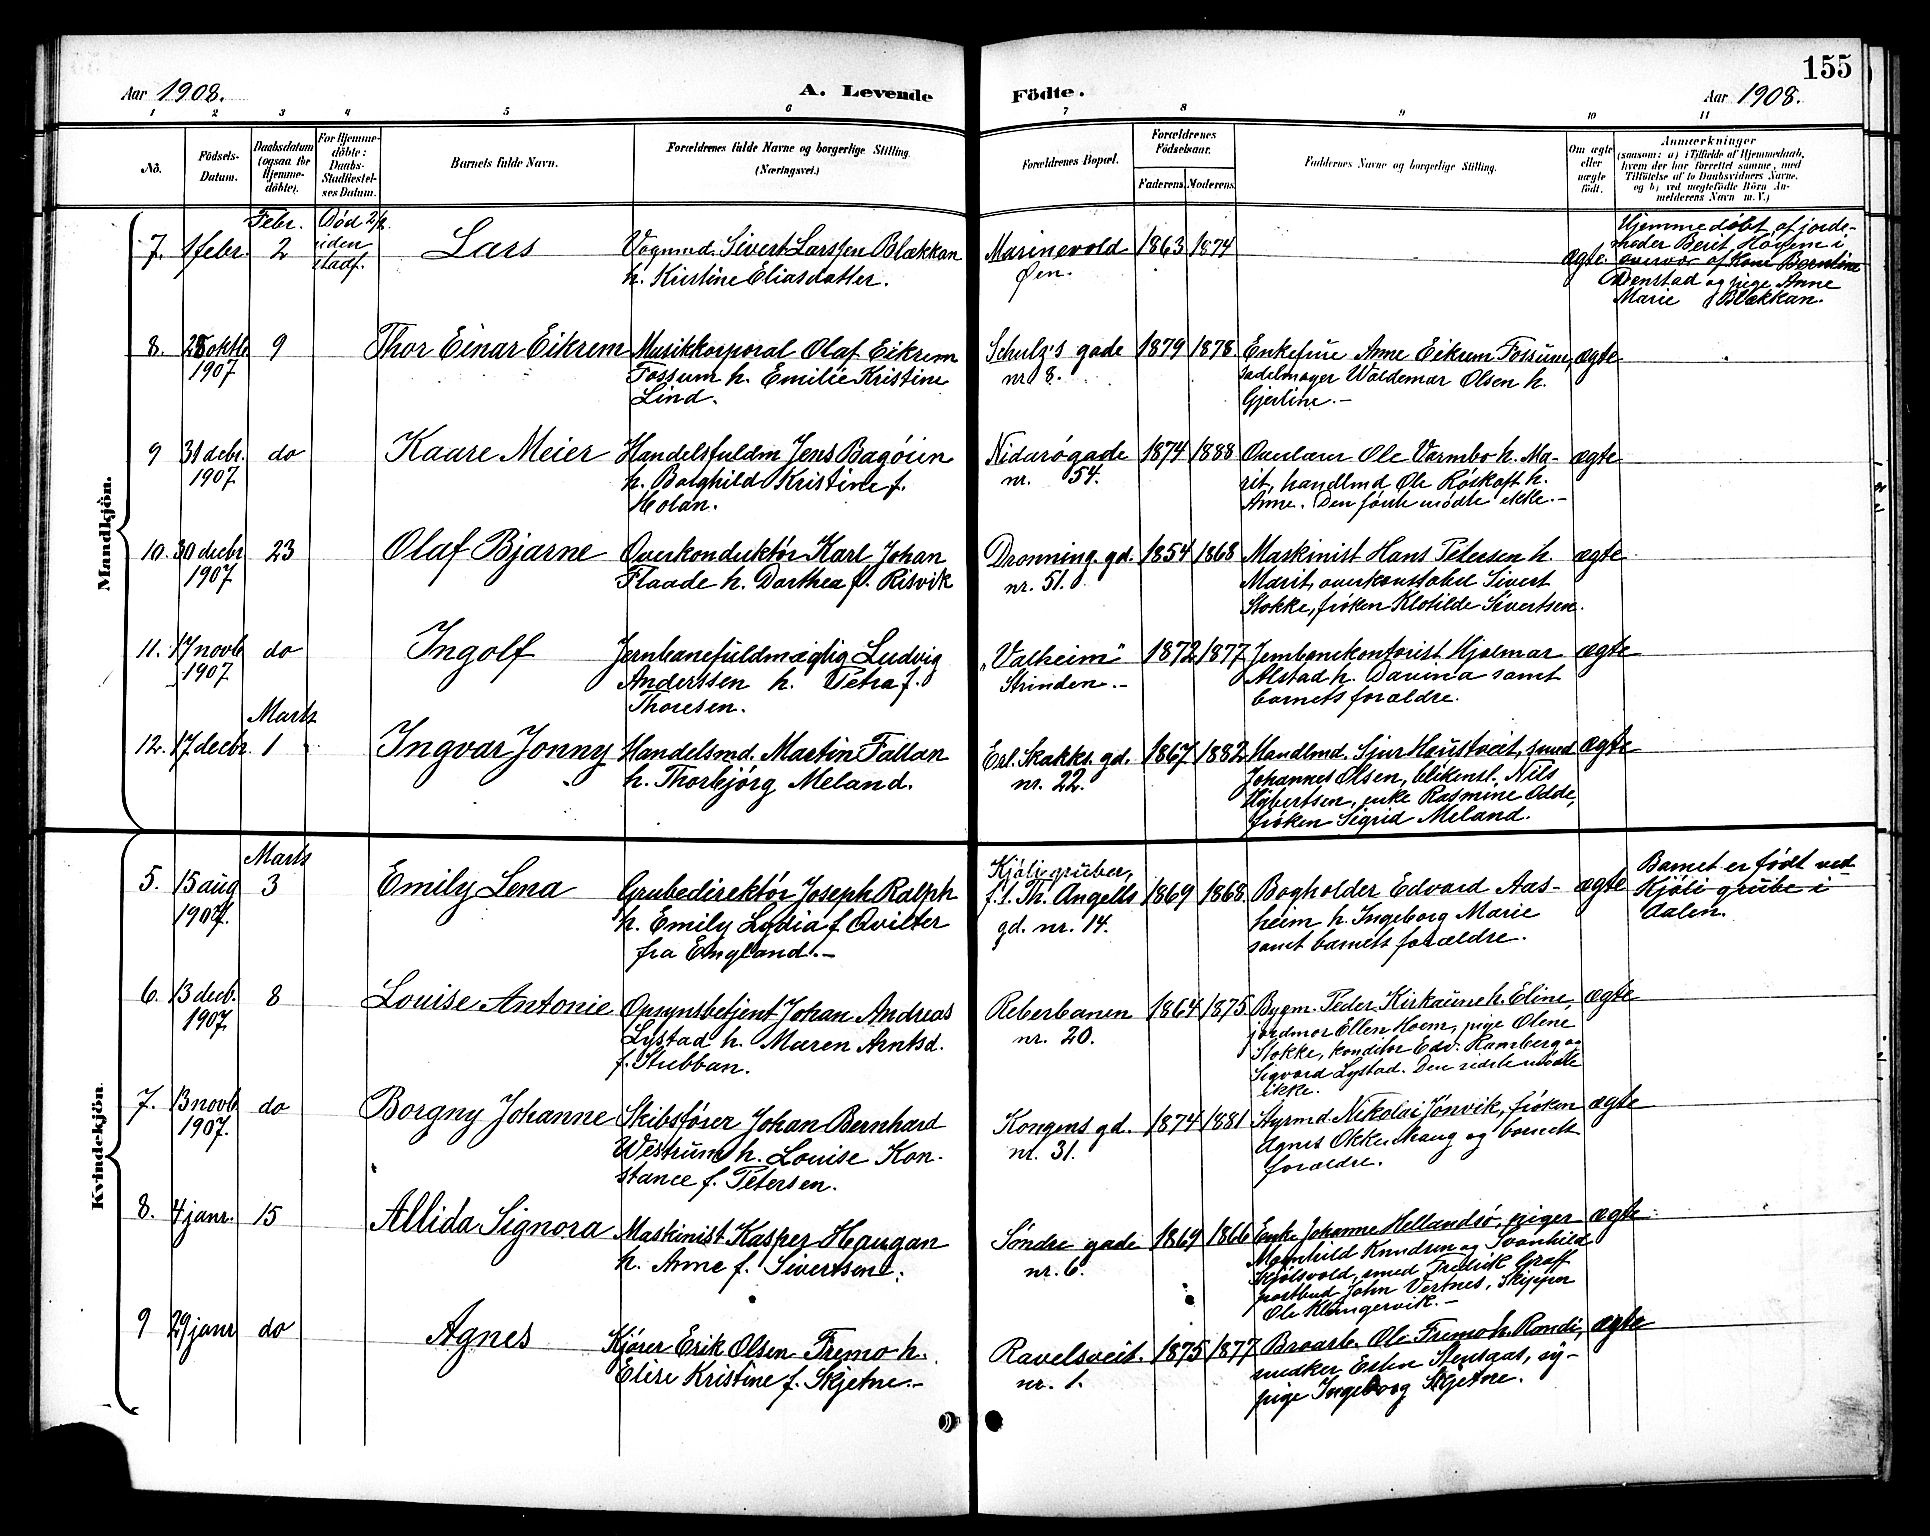 155
Aar 1908.
A. Levende Födte.
Aar 1908.
1 2 3 4 5 6 7 8 9 10 11
No.
Födsels-
Datum.
Daabsdatum
(ogsaa for
Hjemme-
döbte).
For Hjemme-
döbte:
Daabs-
Stadfæstel-
ses Datum.
Barnets fulde Navn.
Forældrenes fulde Navne og borgerlige Stilling.
(Næringsvei.)
Forældrenes Bopæl.
Forældrenes
Födselsaar.
Faderens. Moderens.
Faddernes Navne og borgerlige Stilling.
Om ægte
eller
uægte
födt.
Anmærkninger
(saasom: a) i Tilfælde af Hjemmedaab,
hvem der har forrettet samme, med
Tilföielse af to Daabsvidners Navne,
og b) ved uegtefödte Börn An-
melderens Navn m. V.)
Mandkjön.
7. 1 febr. Febr. 2
Död 2/2
uden
stadf.
Lars
Vognmd. Sivert Larssen Blækkan
h. Kirstine Eliasdatter.
Marinevold
Øen.
1863 1874
ægte.
Hjemmedøbt af jorde-
moder Berit Høyem i
overvær af Kone Berntine
Denstad og pige Anne
Marie Blækkan.
8. 28 oktb. 1907 9
Thor Einar Eikrem
Musikkorporal Olaf Eikrem
Fossum h. Emilie Kristine
Lind.
Schulz's gade
nr 8.
1879 1878
Enkefrue Anne Eikrem Fossum,
sadelmager Waldemar Olsen h.
Gjertine.-
ægte
9 31 decbr. 1907. do
Kaare Meier
Handelsfuldm Jens Bagöien
h. Borghild Kristine f.
Holan.
Nidarøgade
nr. 54.
1874 1888
Overlærer Ole Varmbo h. Ma-
rit, handlmd Ole Röskaft h.
Anne. Den første mødte ikke.-
ægte
10. 30 decbr 1907 23
Olaf Bjarne
Overkonduktör Karl Johan
Flaade h. Dorthea f. Risvik
Dronning. gd.
nr. 51.
1854 1868
Maskinist Hans Petersen h.
Marit, overkonstabel Sivert
Stokke, frøken Klotilde Sivertsen.
ægte
11. 17 novb 1907. do
Ingolf
Jernbanefuldmægtig Ludvig
Anderssen h. Petra f.
Thoresen.
"Valheim"
Strinden.-
1872 1877
Jernbanekontorist Hjalmar
Alstad h. Davina samt
barnets forældre.
ægte
12. 17 decbr. Marts 1
Ingvar Jonny
Handelsmd. Martin Fallan
h. Thorbjörg Meland.
Erl. Skakks. gd.
nr. 22.
1867 1882
Handlmd. Sjur Haustveit, smed
Johannes Olsen, blikensl. Nils
enke Rasmine Odde,
frøken Sigrid Meland.
ægte
Kvindekjön.
5. 15 aug 1907. Marts 3
Emily Lena
Grubedirektör Joseph Ralph
h. Emily Lydia f. Qvilter
fra England.-
Kjöli gruber,
f. t. Th. Angells
gd. nr. 14.
1869 1868
Bogholder Edvard Aas-
heim h. Ingeborg Marie
samt barnets forældre.
ægte
Barnet er født ved
Kjöli grube i
Aalen.
6. 13 decb. 1907. 8
Louise Antonie
Opsynsbetjent Johan Andreas
Lystad h. Maren Arntsd.
f. Stubban.
Reberbanen
nr. 20.
1864 1875
Bygm. Peder Kirkaune h. Eline,
jordmor Ellen Hoem, pige Oline
Stokke, konditor Edv. Ramberg og
Sigvard Lystad. Den sidste mødte
ikke.
ægte
7. 13 novb 1907. do
Borgny Johanne
Skibsfører Johan Bernhard
Westrum h. Louise Kon-
stance f. Petersen.
Kongens gd.
nr. 31.
1874 1881
Styrmd. Nikolai Jönvik, frøken
Agnes Haug og barnets
forældre.
ægte
8. 4 janr. 15
Allida Signora
Maskinist Kasper Haugan
h. Anne f. Sivertsen.
Söndre gade
nr. 6.
1869 1866
Enke Johanne Hellandsö, piger
Magnhild Knudsen og Svanhild
Skjölsvold, smed Fredrik Graff
postbud John Vertnes, Skipper
Ole Klungervik.-
ægte
9 29 janr do
Agnes
Kjører Erik Olsen Fremo h.
Elise Kristine f. Skjetne.-
Ravelsveit.
nr. 1.
1875 1877
Broarb. Ole Fremo h. Randi,
snedker Esten Stensaas, sy-
pige Ingeborg Skjetne.
ægte